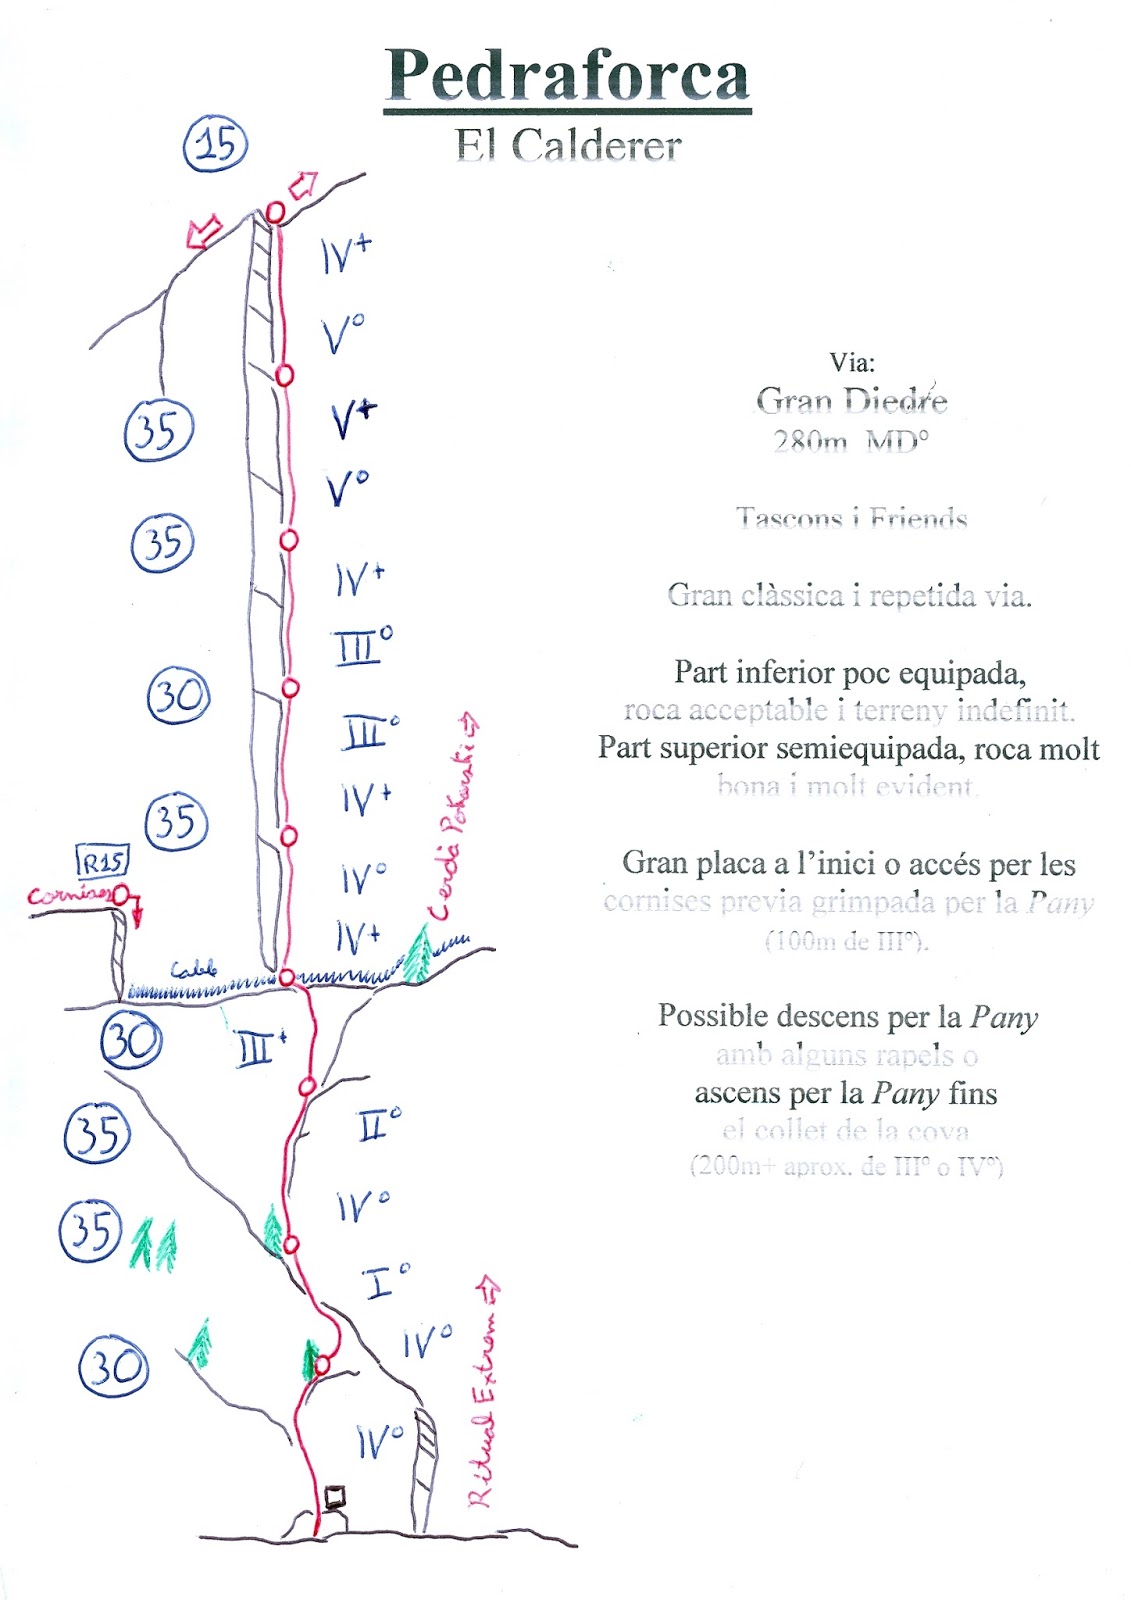 Pedraforca
El Calderer
15
IV+
Vº
35
V+
Vº
35
IV+
IIIº
30
IIIº
IV+
35
IVº
IV+
R15
cornises
Cable
Cerdà Pokorski
30
III+
35
IIº
35
IVº
Iº
30
IVº
IVº
Ritual Extrem
Via:
Gran Diedre
280m MDº
Tascons i Friends
Gran clàssica i repetida via.
Part inferior poc equipada,
roca acceptable i terreny indefinit.
Part superior semiequipada, roca molt
bona i molt evident.
Gran placa a l’inici o accés per les
cornises previa grimpada per la Pany
(100m de IIIº).
Possible descens per la Pany
amb alguns rapels o
ascens per la Pany fins
el collet de la cova
(200m+ aprox. de IIIº o IVº)